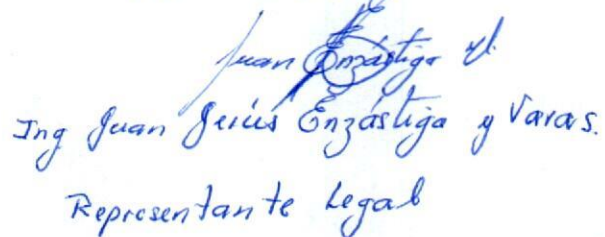 Juan Enzástiga V.
Ing Juan Jesús Enzástiga y Varas.
Representante Legal